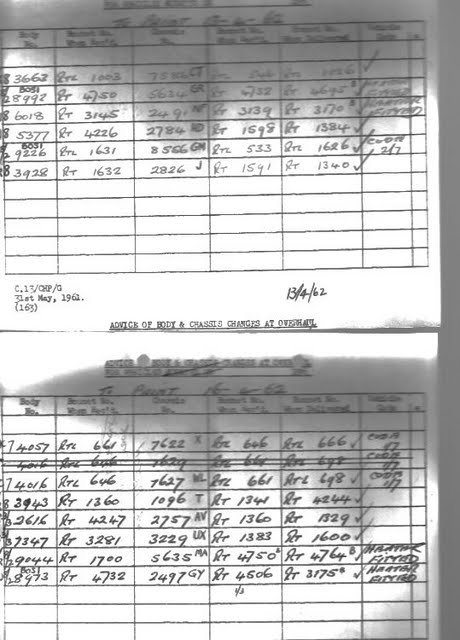 To Print 16-4-62
Body No. Bonnet No. When Rec'd. Chassis No. Bonnet No. When Rec'd. Bonnet No. When Delivered Vehicle Code
3663 RTL 1003 7582 CT RTL 546 RTL 1026 ✓
BO31
8992 RT 4750 5624 GR RT 4732 RT 4695 B HEATER FITTED
8 6018 RT 3145 2491 NF RT 3139 RT 3170 B HEATER FITTED
8 5377 RT 4226 2784 RD RT 1598 RT 1384 ✓
BO31
9226 RTL 1631 8566 GM RTL 533 RTL 1626 ✓ CODE 2/7
8 3928 RT 1632 2826 J RT 1591 RT 1340 ✓
C.13/CHP/G
31st May, 1961.
(163)
13/4/62
ADVICE OF BODY & CHASSIS CHANGES AT OVERHAUL
ADVICE OF BODY & CHASSIS CHANGES AT OVER
To Print 16-4-62
Body No. Bonnet No. When Rec'd. Chassis No. Bonnet No. When Rec'd. Bonnet No. When Delivered Vehicle Code
7 4057 RTL 661 7622 X RTL 646 RTL 666 ✓ CODE
4016 RTL 646 RTL 661 RTL 698 CODE
7 4016 RTL 646 7627 WL RTL 661 RTL 698 ✓ CODE
8 3943 RT 1360 1096 T RT 1341 RT 4244 ✓
2616 RT 4247 2757 AV RT 1360 RT 1329 ✓
7347 RT 3281 3229 UX RT 1383 RT 1600 ✓
9044 RT 1700 5635 MA RT 4750 B RT 4764 B ✓ HEATER FITTED
BO31
8973 RT 4732 2497 GY RT 4506 RT 3175 B ✓ HEATER FITTED